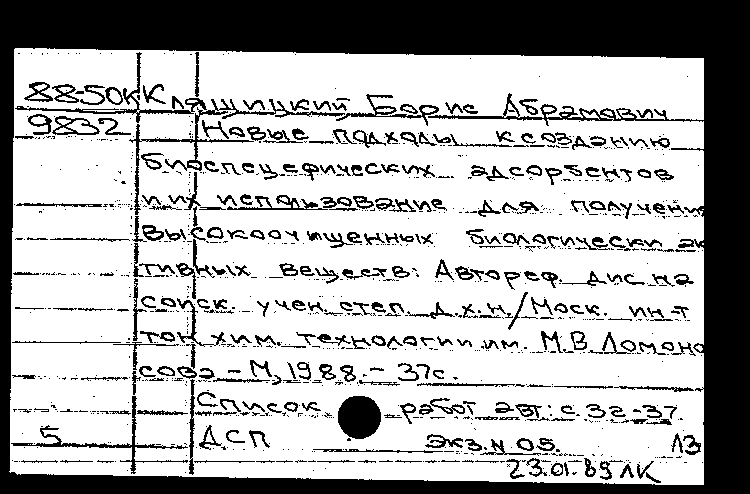 88-50КК Кляшицкий Борис Абрамович
9832 Новые подходы к созданию
биоспецефических адсорбентов
и их использование для получени
высокоочищенных биологически ак
тивных веществ: Автореф. дис. на
соиск. учен. степ. д.х.н./Моск. ин-т
тон хим. технологии им. М.В. Ломоно
сова – М, 1988. – 37с.
Список работ авт: с. 32-37.
5 ДСП Экз. N 05. ЛЗ
23.01.89 ЛК